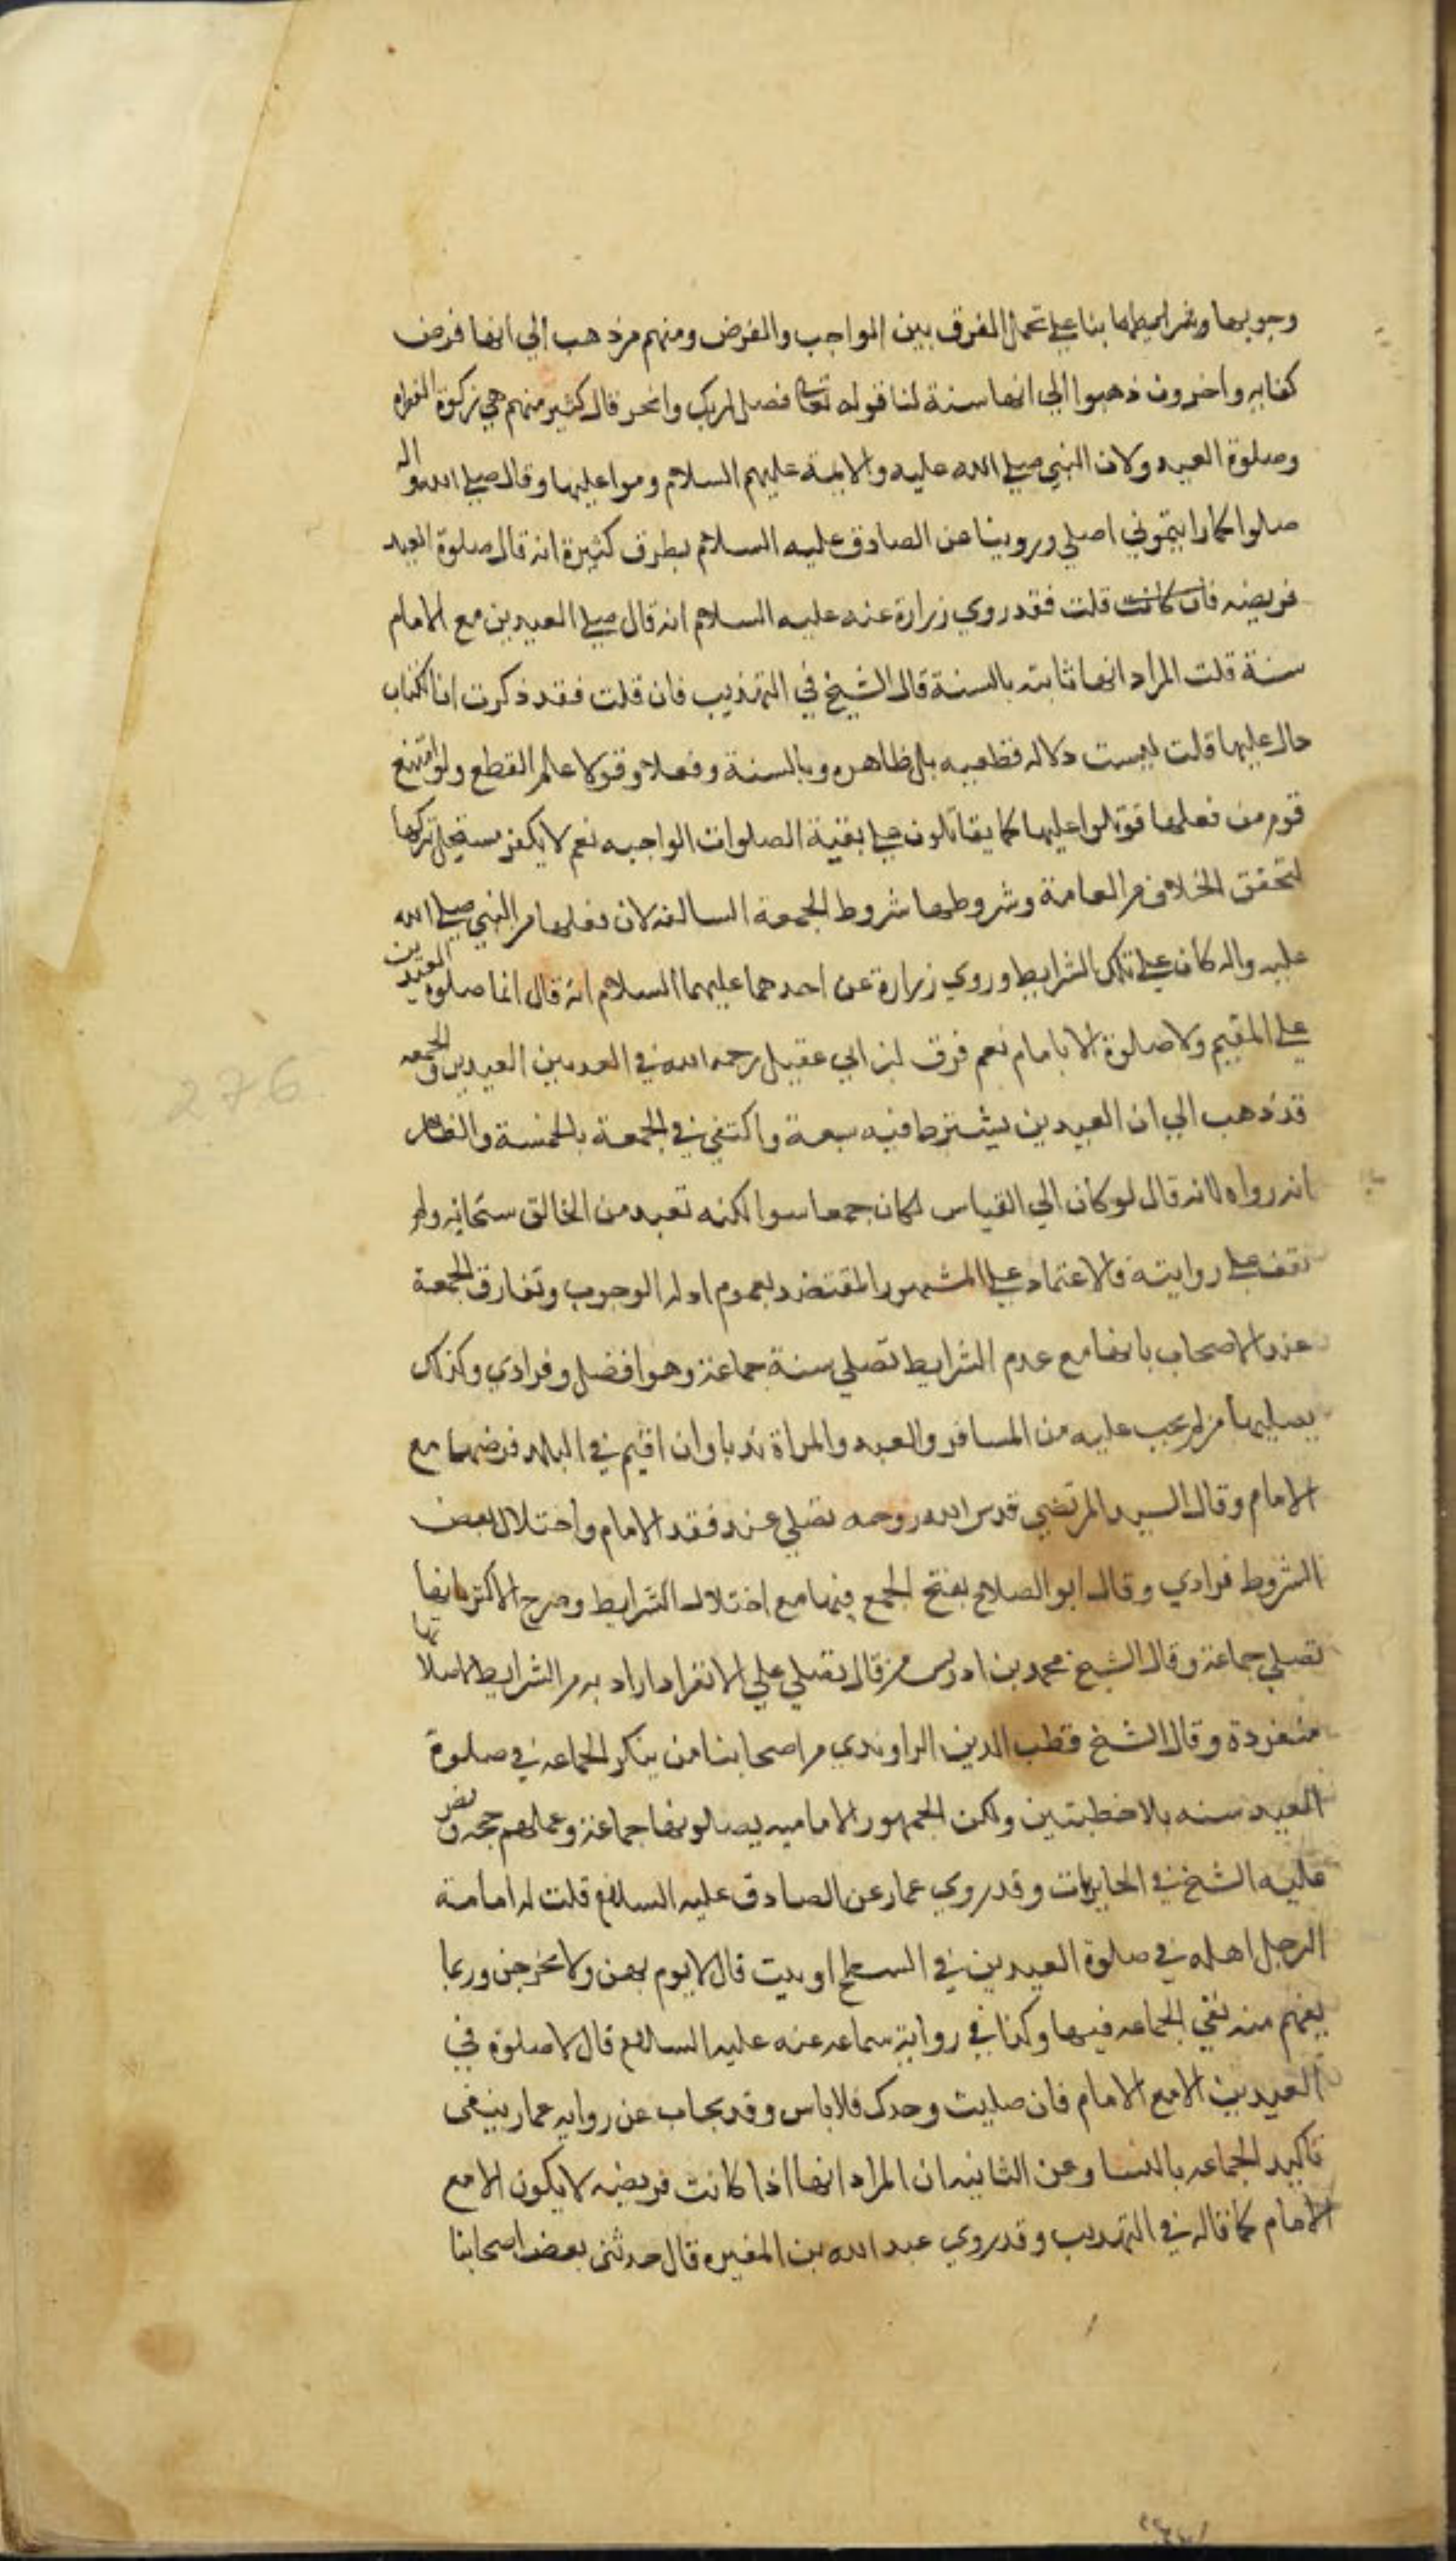 وجوبها وشرايطها بنا علي تحمل الفرق بين الواجب والفرض ومنهم من ذهب الي انها فرض
كفايه واخرون ذهبوا الي انها سنة لنا قوله تعالى فصل لربك وانحر قال كثير منهم هي زكوة الفطره
وصلوة العيد ولان النبي صلي الله عليه والايمة عليهم السلام وموا عليها وقال صلي الله واله
صلوا كما رايتموني اصلي وروينا عن الصادق عليه السلام بطرق كثيرة انه قال صلوة العيد
فريضه فان كانت قلت فقد روي زرارة عنه عليه السلام انه قال صلي العيدين مع الامام
سنة قلت المراد انها ثابته بالسنة قال الشيخ في التهذيب فان قلت فقد ذكرت ان الكتاب
دال عليها قلت ليست دلاله قطعيه بل ظاهره وبالسنة وفعلا وقولا علم القطع ولو امتنع
قوم من فعلها قوتلوا عليها كما يقاتلون علي بقية الصلوات الواجبه نعم لا يكفر مستحل تركها
لتحقق الخلاف من العامة وشروطها شروط الجمعة السالفه لان فعلها من النبي صلي الله
عليه واله كان علي تلك الشرايط وروي زرارة عن احدهما عليهما السلام انه قال انما صلوة العيدين
علي المقيم ولا صلوة الا بامام نعم فرق ابن ابي عقيل رحمه الله في العدد بين العيدين والجمعه
قد ذهب الي ان العيدين يشترط فيه سبعة واكتفي في الجمعة بالخمسة والظاهر
انه رواه لانه قال لو كان الي القياس لكان جمعا سوا لكنه تعبد من الخالق سبحانه ولم
نقف علي روايته فالاعتماد علي المشهور المقتضد بعموم ادله الوجوب وتفارق الجمعة
عند الاصحاب بانها مع عدم الشرايط تصلي سنة جماعة وهو افضل وفرادي وكذلك
يصليها من لم يجب عليه من المسافر والعبد والمراة ندبا وان اقيم في البلد فرضها مع
الامام وقال السيد المرتضي قدس الله روحه تصلي عند فقد الامام واختلال بعض
الشروط فرادي وقال ابو الصلاح بفتح الجمع فيها مع اختلال الشرايط وصرح الاكثر بانها
تصلي جماعة وقال الشيخ محمد بن ادريس من قال تصلي علي الانفراد اراد به من الشرايط لا صلاتها
منفردة وقال الشيخ قطب الدين الراوندي من اصحابنا من ينكر الجماعه في صلوة
العيد سنه بلا خطبتين ولكن الجمهور الاماميه يصلونها جماعة وعملهم حجه ونص
عليه الشيخ في الحايريات وقد روي عمار عن الصادق عليه السلام قلت له امامة
الرجل اهله في صلوة العيدين في السطح او بيت قال لا يوم بهن ولا يخرجن وربما
يفهم منه نفي الجماعه فيها وكذا في رواية سماعه عنه عليه السلام قال لا صلوة في
العيدين الا مع الامام فان صليت وحدك فلا باس وقد يجاب عن روايه عمار بنفي
تاكيد الجماعه بالنسا وعن الثانيه ان المراد انها اذا كانت فريضه لا يكون الا مع
الامام كما قاله في التهذيب وقد روي عبد الله بن المغيره قال حدثني بعض اصحابنا
276